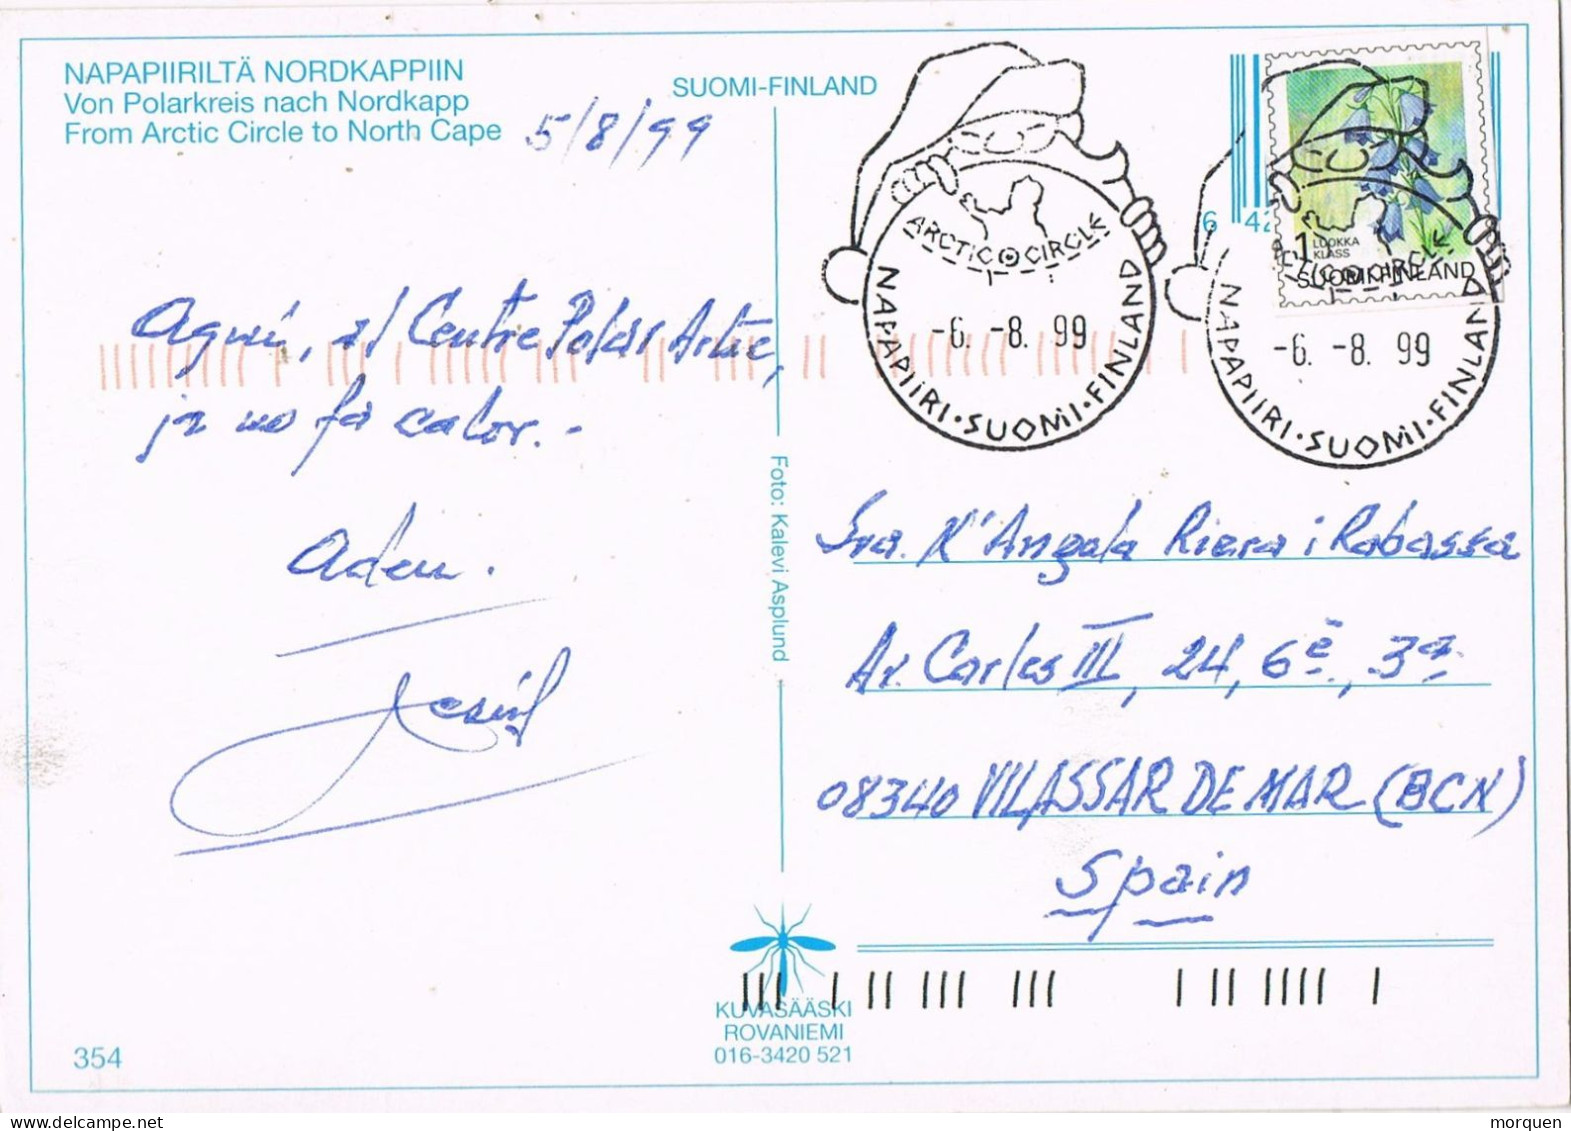 NAPAPIIRILTÄ NORDKAPPIIN
Von Polarkreis nach Nordkapp
From Arctic Circle to North Cape
5/8/99
SUOMI-FINLAND
ARCTIC CIRCLE
NAPAPIIRI · SUOMI · FINLAND
-6. -8. 99
6 42
1 LUOKKA
KLASS
SUOMI FINLAND
CIRCLE
NAPAPIIRI · SUOMI · FINLAND
-6. -8. 99
Aquí, al Centre Polar Artic,
ja no fa calor.-
Adeu.
Foto: Kalevi Asplund
Sra. Mª Angela Riera i Rabassa
Av. Carles III, 24, 6è, 3ª
08340 VILASSAR DE MAR (BCN)
Spain
KUVASÄÄSKI
ROVANIEMI
016-3420 521
354
morquen